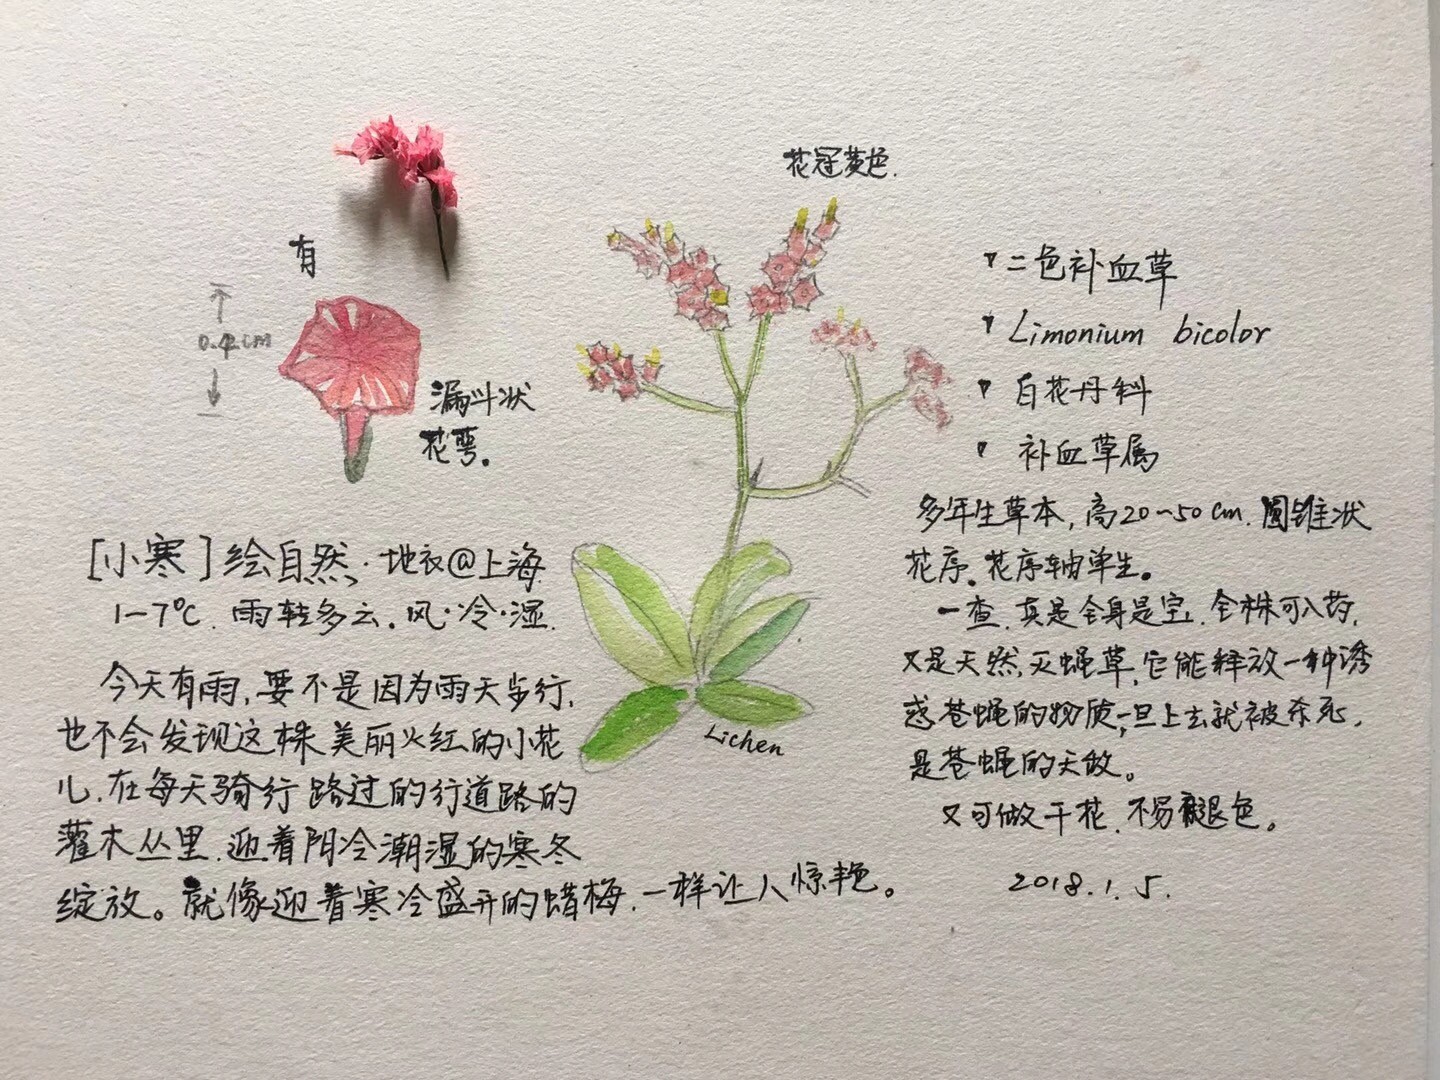 花冠黄色.
有
0.4cm
漏斗状
花萼。
▾二色补血草
▾Limonium bicolor
▾白花丹科
▾补血草属
多年生草本,高20~50cm.圆锥状
花序。花序轴单生。
一查.真是全身是宝.全株可入药.
又是天然灭蝇草,它能释放一种诱
惑苍蝇的物质,一旦上去就被杀死.
是苍蝇的天敌。
又可做干花.不易褪色。
2018.1.5.
[小寒]绘自然·地衣@上海
1-7℃.雨转多云.风·冷·湿.
今天有雨,要不是因为雨天步行,
也不会发现这株美丽火红的小花
儿.在每天骑行路过的行道路的
灌木丛里.迎着阴冷潮湿的寒冬
绽放。就像迎着寒冷盛开的蜡梅.一样让人惊艳。
Lichen